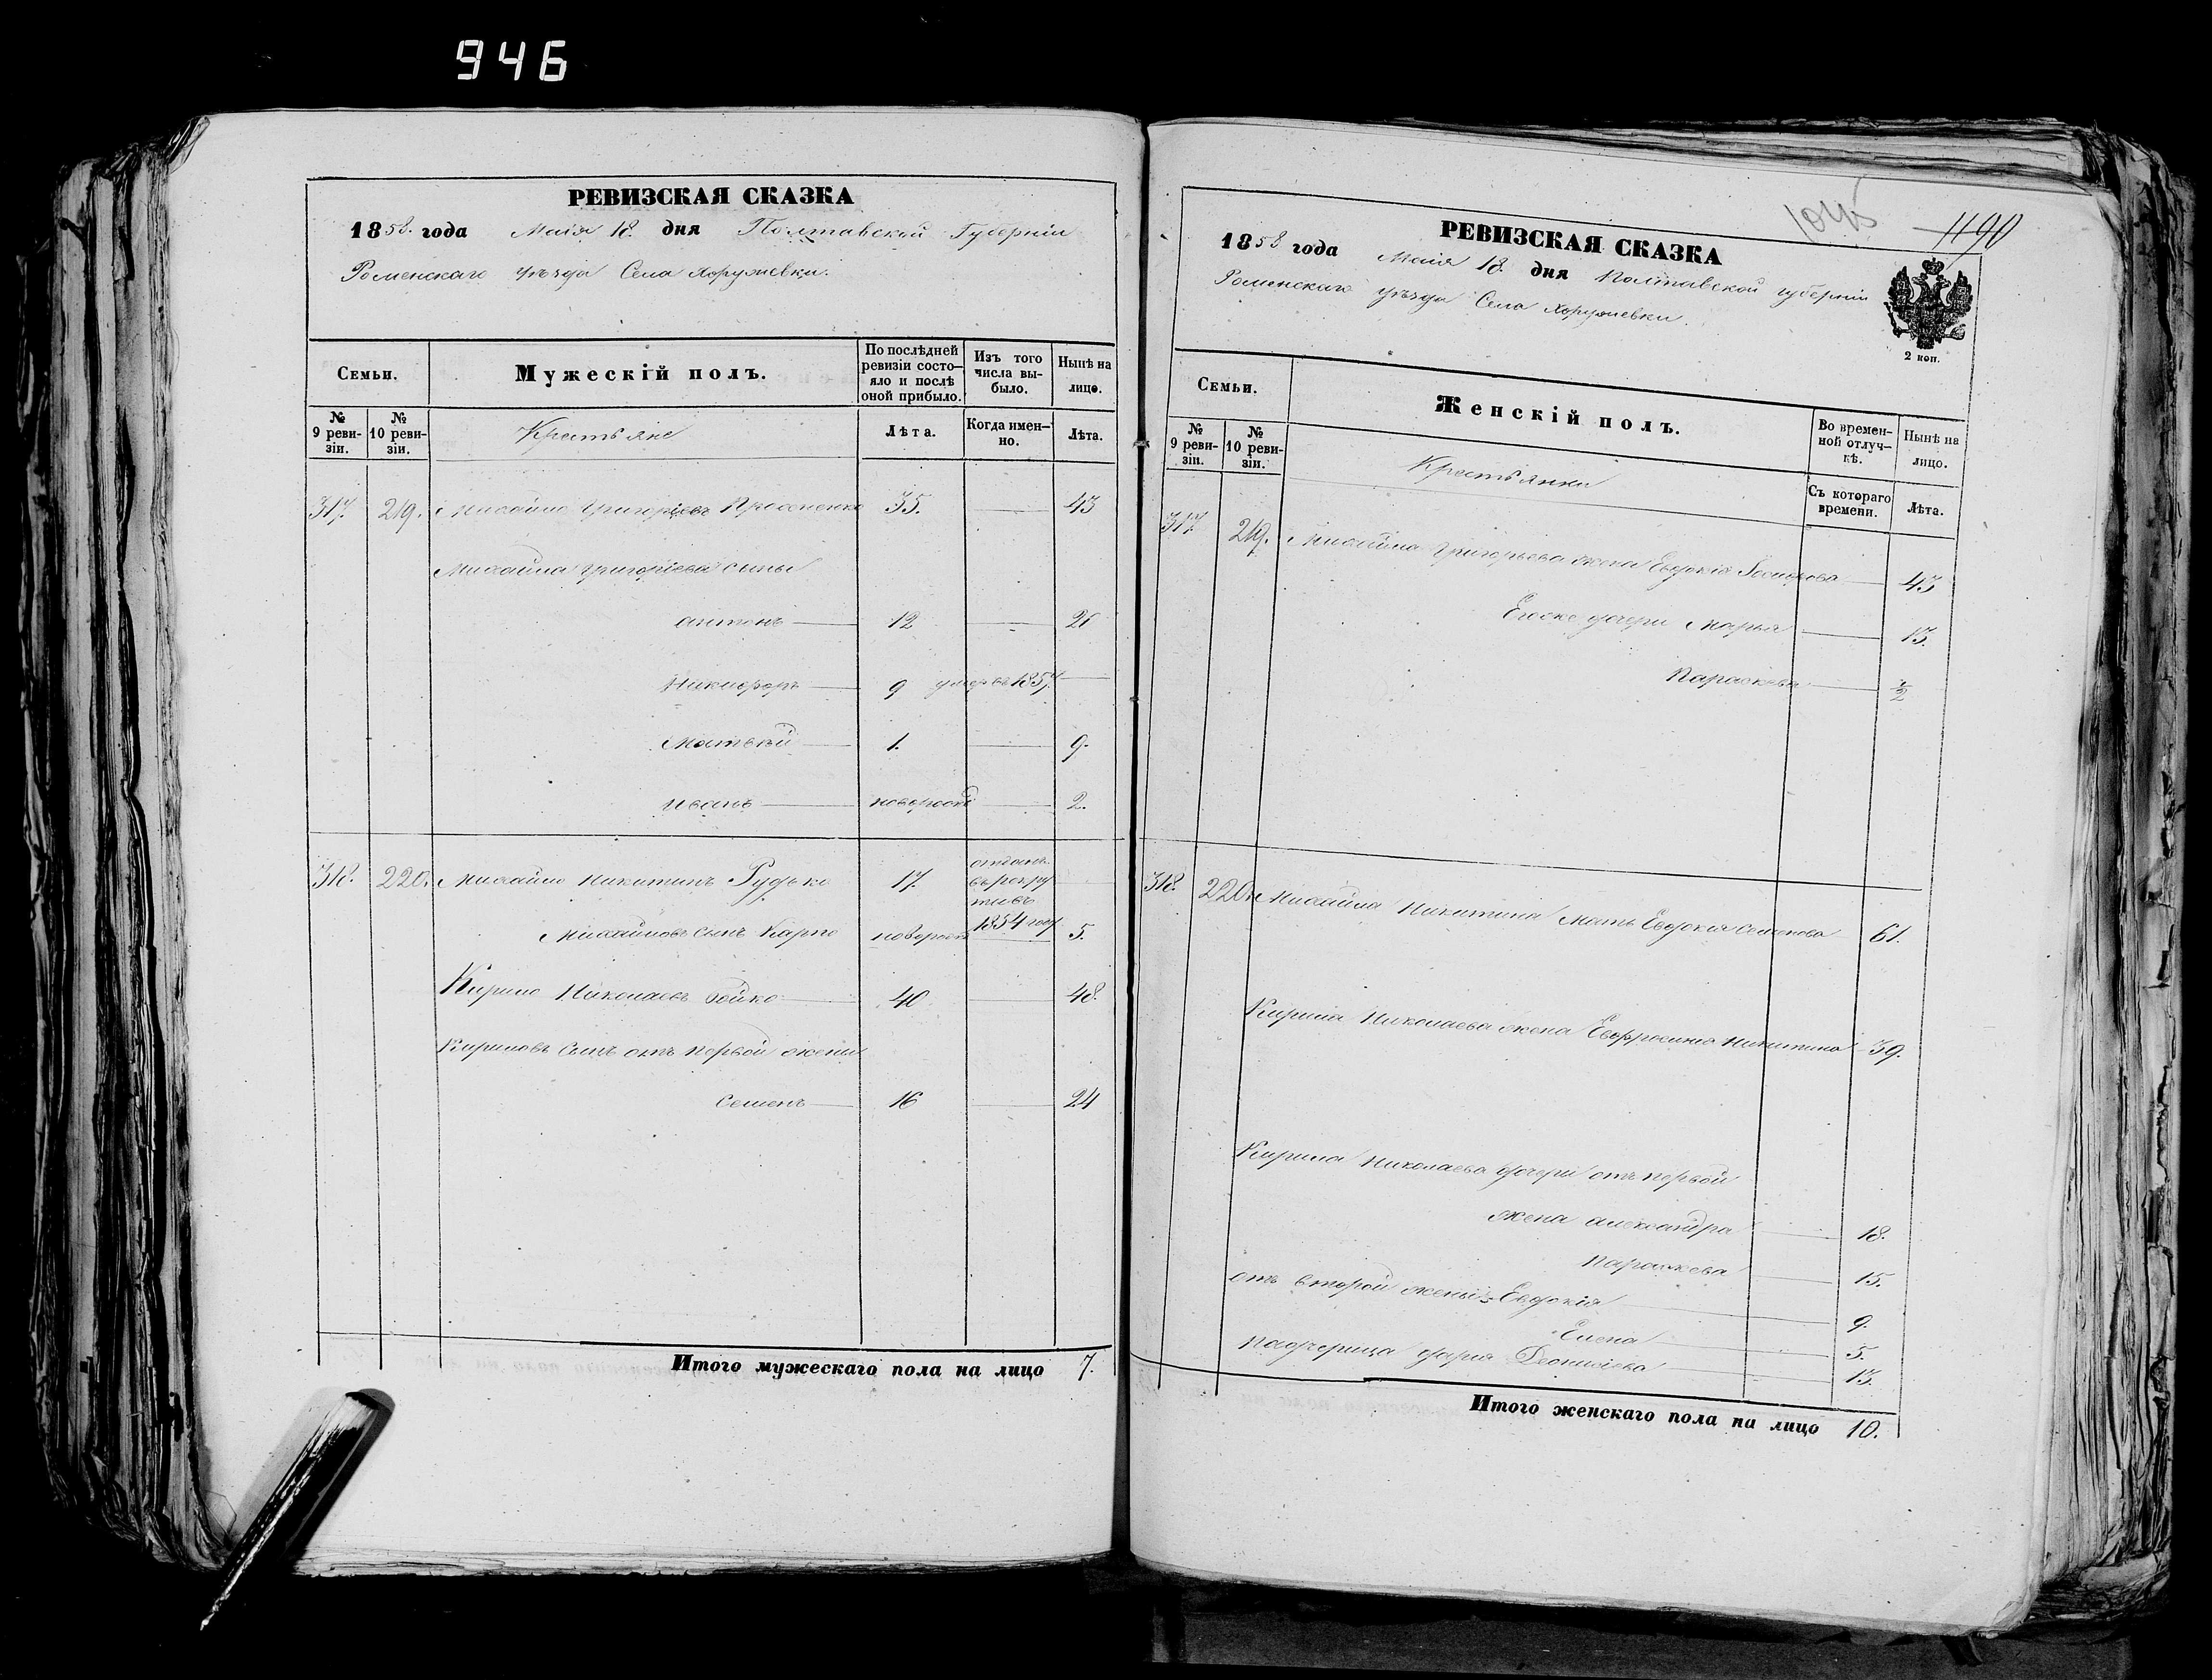 946
РЕВИЗСКАЯ СКАЗКА
1858. года Маія 18. дня Полтавской Губерніи
Роменскаго уѣзда Села Хоружевки.
Семьи.
Мужескій полъ.
По послѣдней ревизіи состо—яло и послѣ оной прибыло.
Изъ того числа вы-было.
Нынѣ на лицо.
№ 9 реви-зіи.
№ 10 реви-зіи.
Крестьяне
Лѣта.
Когда имен—но.
Лѣта.
317. 219. Михайло Григоріевъ 35. 43
Михайла Григоріева сыны
антонъ 12 21
Никифоръ 9 умеръ въ 1857
Матвѣй 1. 9.
иванъ новорожд 2.
318. 220. Михайло Никитинъ Рудько 17. отданъ въ рекруты въ 1854 году
Михайловъ сынъ Карпо новорожд 5.
Кирило Николаевъ Бойко 40 48.
Кириловъ сынъ отъ первой жены
Семенъ 16 24
Итого мужескаго пола на лицо 7.
1045 1190
РЕВИЗСКАЯ СКАЗКА
1858 года Маія 18. дня Полтавской губерніи
Роменскаго уѣзда Села Хоружевки.
2 коп.
Семьи.
Женскій полъ.
Во времен-ной отлуч-кѣ.
Нынѣ на лицо.
№ 9 реви-зіи.
№ 10 реви-зіи.
Крестьянки
Съ котораго времени.
Лѣта.
317. 219. Михайла Григорьева жена Евдокія 43
Егоже дочери Марья 13.
Параскева ½
318. 220. Михайла Никитина Мать Евдокія Семенова 61.
Кирила Николаева жена Евфросинія Никитина 39.
Кирила Николаева дочери отъ первой
жены александра 18.
Параскева 15.
отъ второй жены Евдокія 9.
Елена 5.
падчерица дарія 13.
Итого женскаго пола на лицо 10.